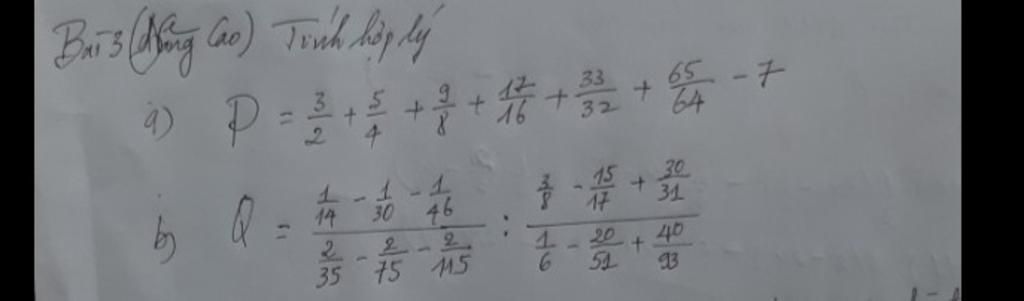 Bài 3 (Nâng Cao) Tính hợp lý
a) P = 3/2 + 5/4 + 9/8 + 17/16 + 33/32 + 65/64 - 7
b) Q = (1/14 - 1/30 - 1/46)/(2/35 - 2/75 - 2/115) : (3/8 - 15/17 + 30/31)/(1/6 - 20/51 + 40/93)